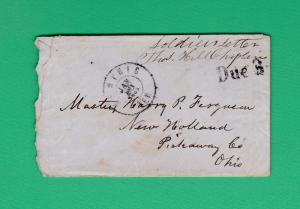 Soldiers letter
Thos. Hill Chaplain
Due 3
Master Harry P. Ferguson
New Holland
Pickaway Co
Ohio